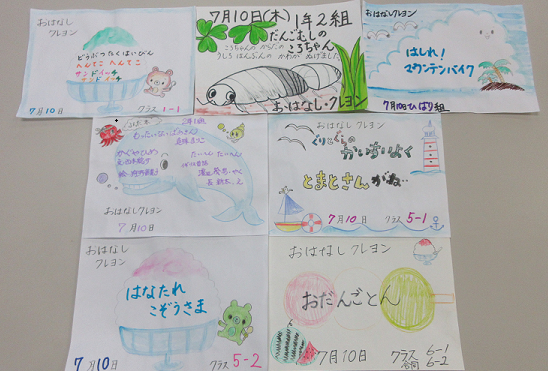 おはなし
クレヨン
どうぶつたくはいびん
へんてこ へんてこ
サンドイッチ
7月10日
クラス 1-1
7月10日(木) 1年2組
だんごむしの
ころちゃん
ころちゃんの からだの
うしろ はんぶんの かわが ぬけました
おはなし・クレヨン
おはなしクレヨン
はしれ!
マウンテンバイク
7月10日 ひばり組
もったいないばあさん
かぐやひめ
おはなしクレヨン
7月10日
おはなしクレヨン
ぐりとぐらの
かいすいよく
とまとさんがね‥
7月10日 クラス 5-1
おはなし
クレヨン
はなたれ
こぞうさま
7月10日
クラス 5-2
おはなし
クレヨン
おだんごとん
7月10日
クラス 6-1
合同 6-2